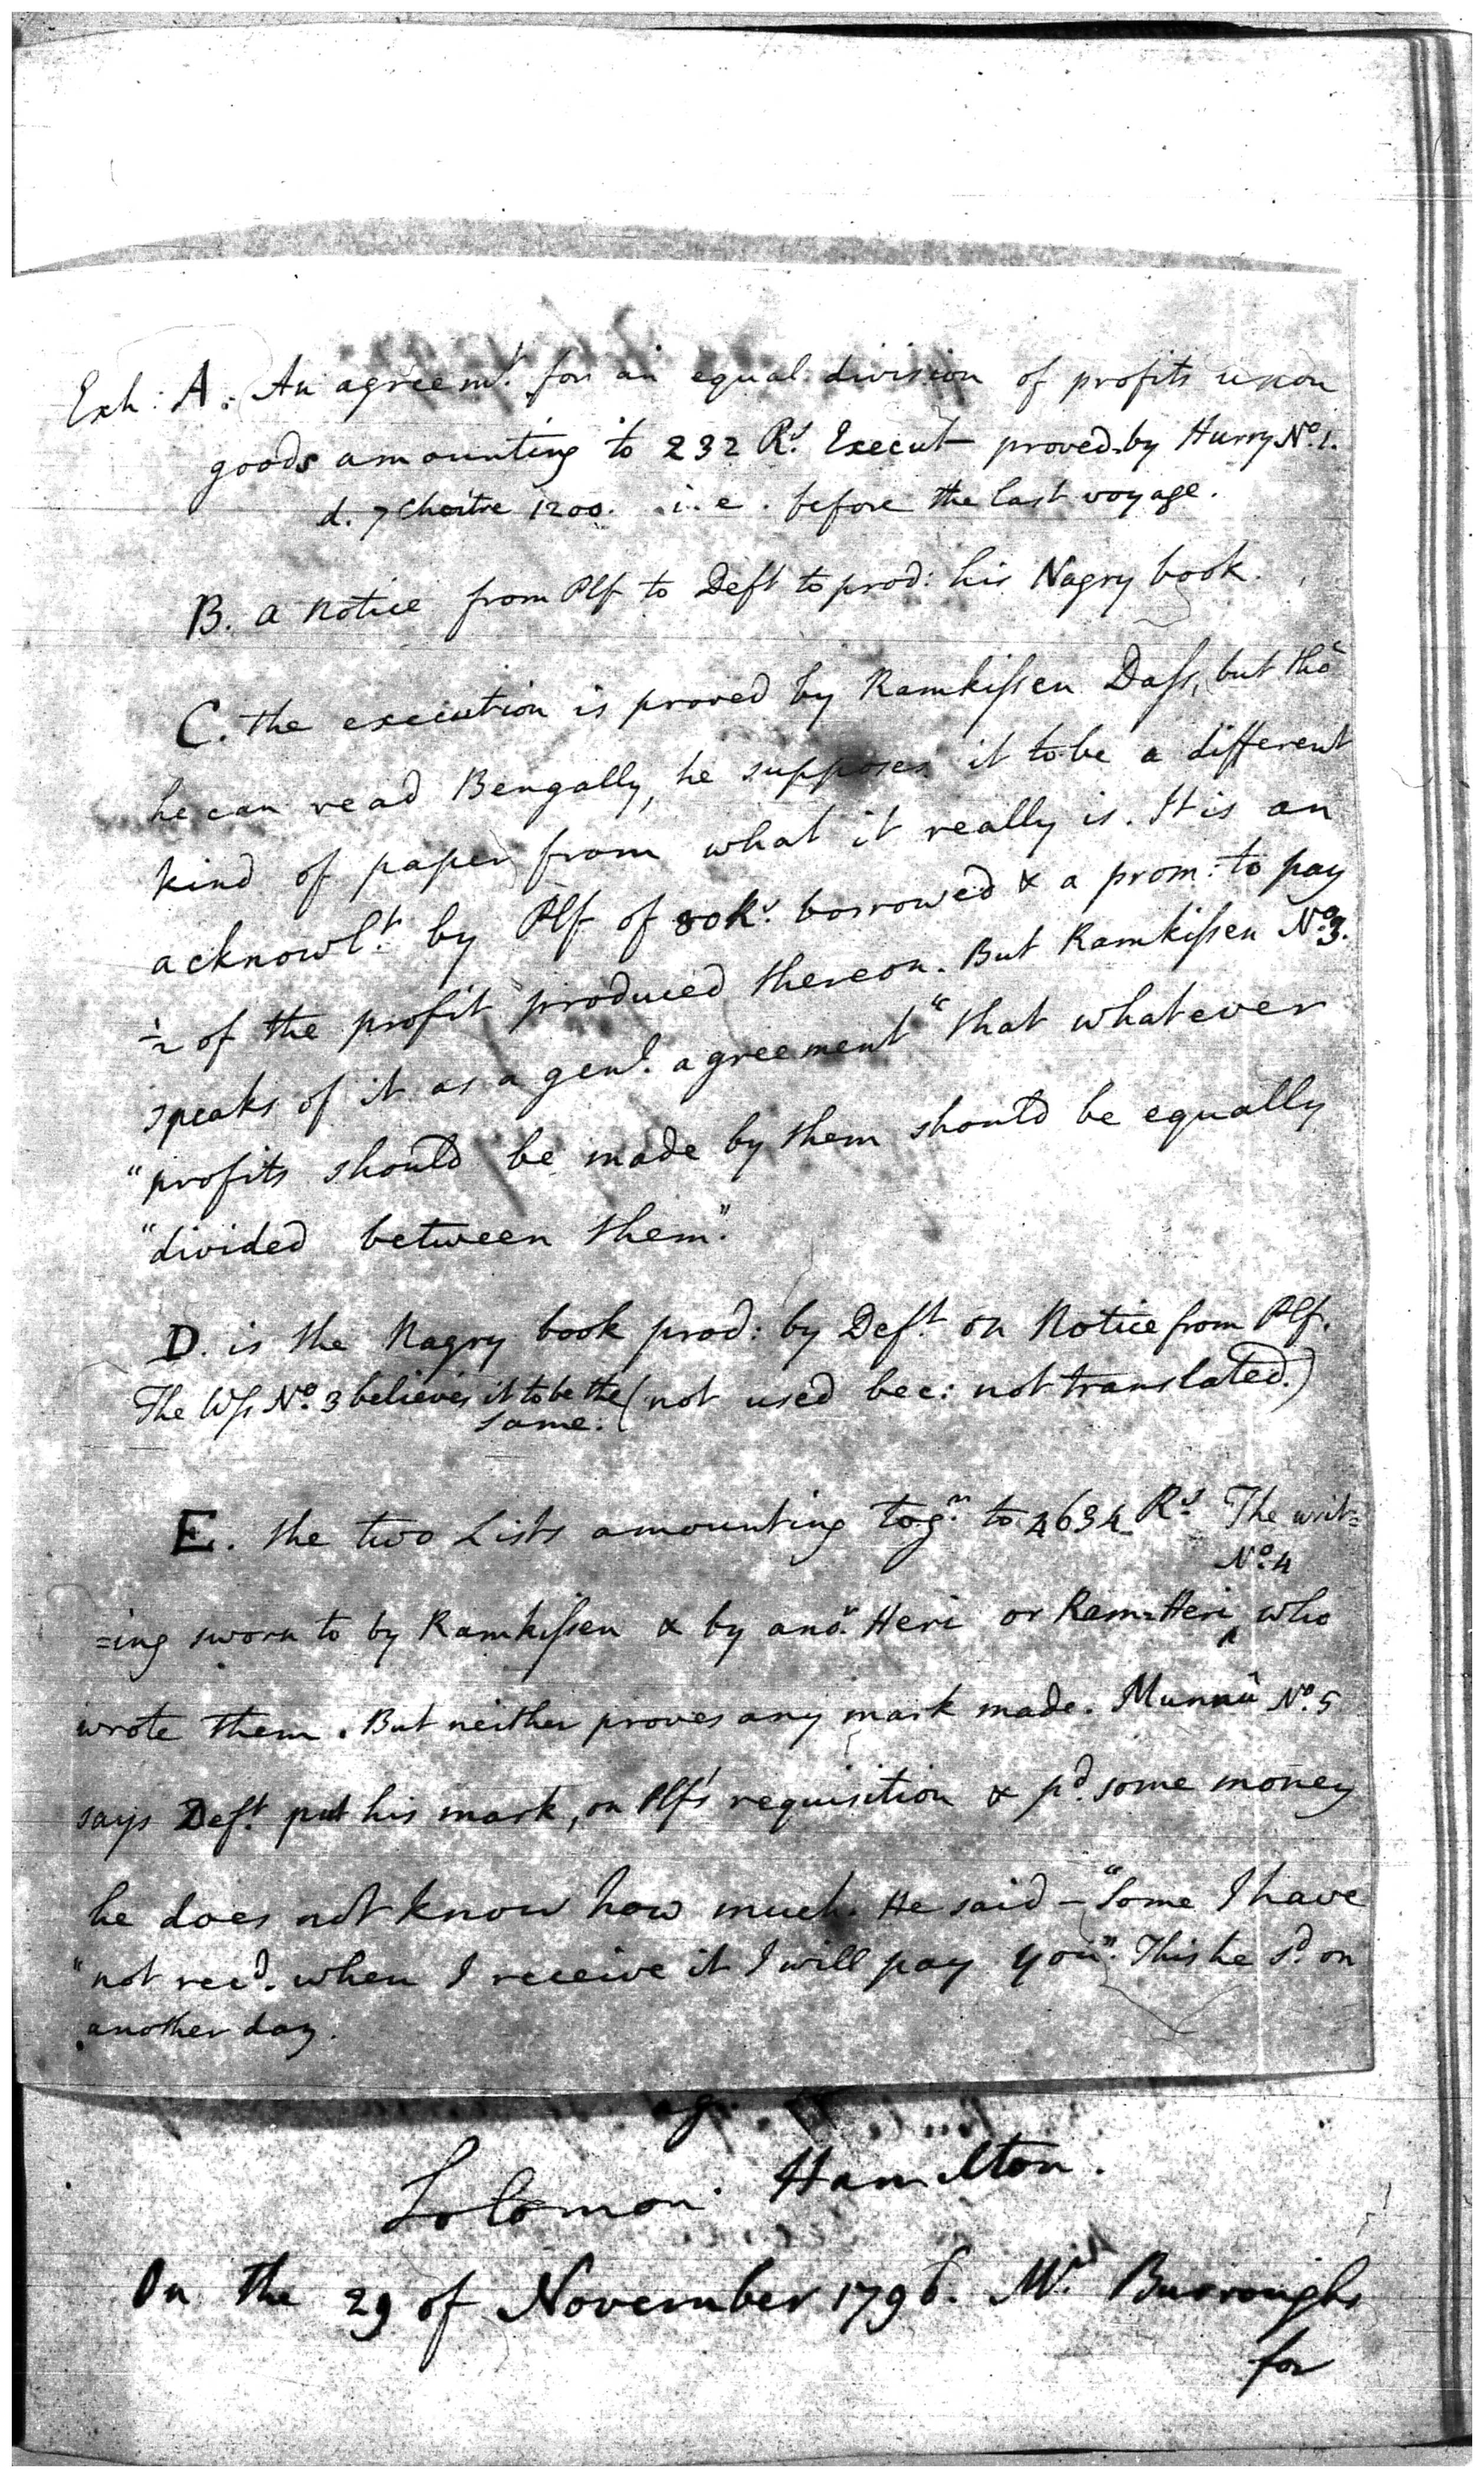 Exh: A. An agreemt. for an equal division of profits upon
goods amounting to 232 Rs. Execut proved by Hurry No. 1.
d. 7 Choitre 1200. i.e. before the last voyage.
B. a notice from Plf to Deft to prod: his Nagry book.
C. the execution is proved by Ramkissen Dass, but tho'
he can read Bengally, he supposes it to be a different
kind of paper from what it really is. It is an
acknowlt. by Plf of 80 Rs. borrowed & a prom: to pay
½ of the profit produced thereon. But Ramkissen No. 3.
speaks of it as a genl. agreement "that whatever
"profits should be made by them should be equally
"divided between them."
D. is the Nagry book prod: by Deft. on Notice from Plf.
The Wss No. 3 believes it to be the (not used bec: not translated.)
same.
E. the two Lists amounting togr. to 4634 Rs. The writ=
No. 4
=ing sworn to by Ramkissen & by anor. Heri or Ram=Heri ^ who
wrote them. But neither proves any mark made. Munnû No. 5
says Deft. put his mark, on Plf's requisition & pd. some money
he does not know how much. He said — "Some I have
"not recd. when I receive it I will pay you". This he sd. on
another day.
Solomon Hamilton.
On the 29 of November 1796. Mr. Burroughs
for